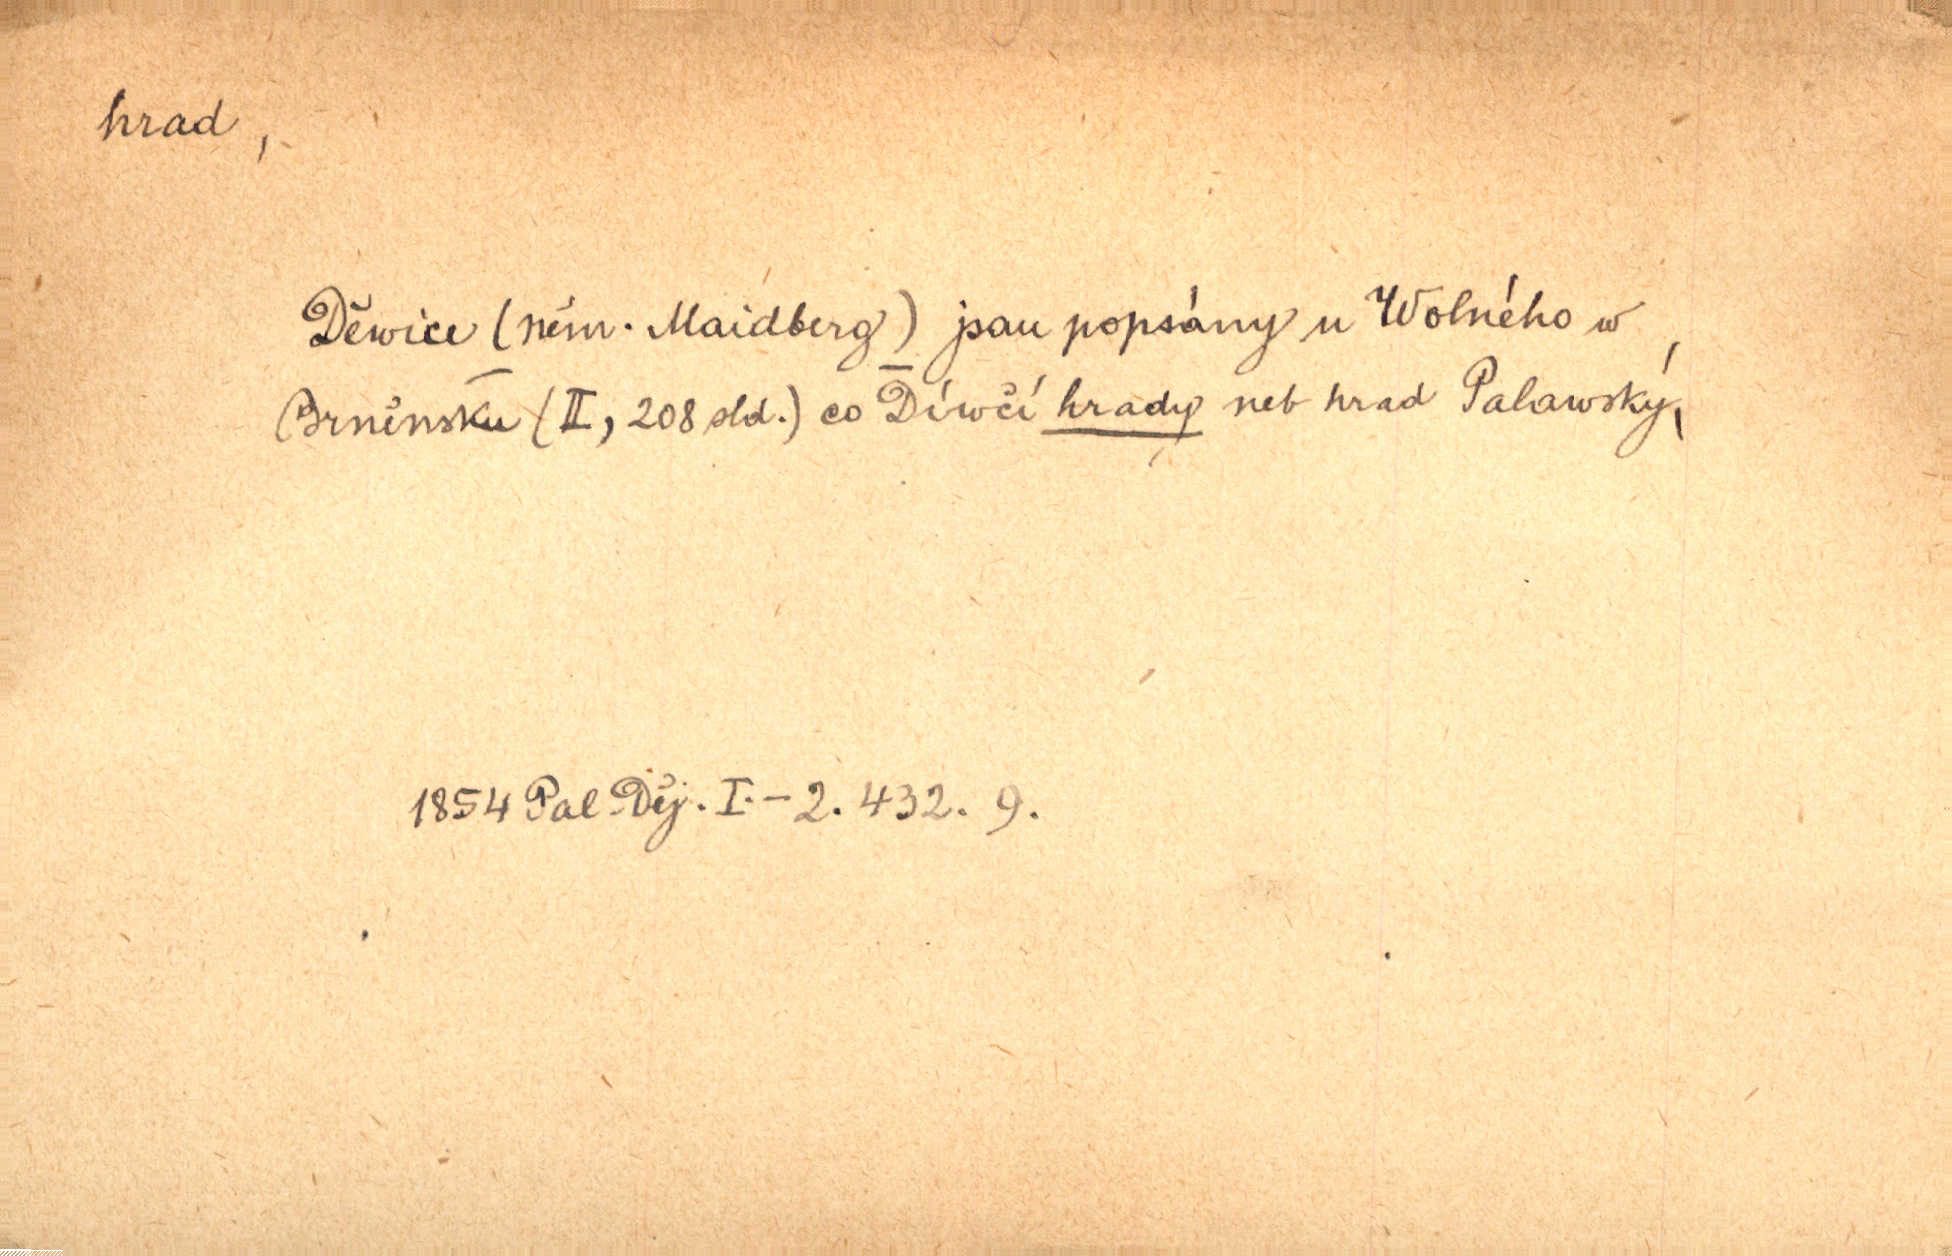 hrad,
Děwice (něm. Maidberg) jsau popsány u Wolného w
Brněnsku (II, 208 sld.) co Díwčí hrady neb hrad Palawský,
1854 Pal Děj. I.-2. 432. 9.